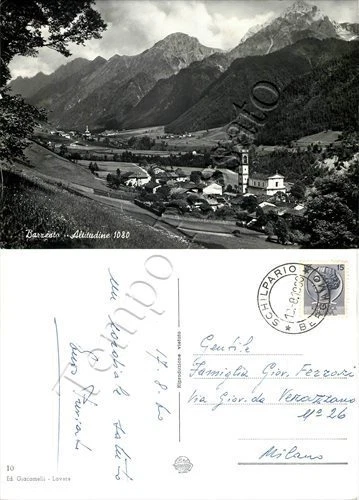 Barzesto - Altitudine 1080
SCHILPARIO
15
17.8.60
un cordiale saluto
Gentile
Famiglia Giov. Ferrari
Via Giov. da Verazzano
N° 26
Milano
Riproduzione vietata
10
Ed. Giacomelli - Lovere